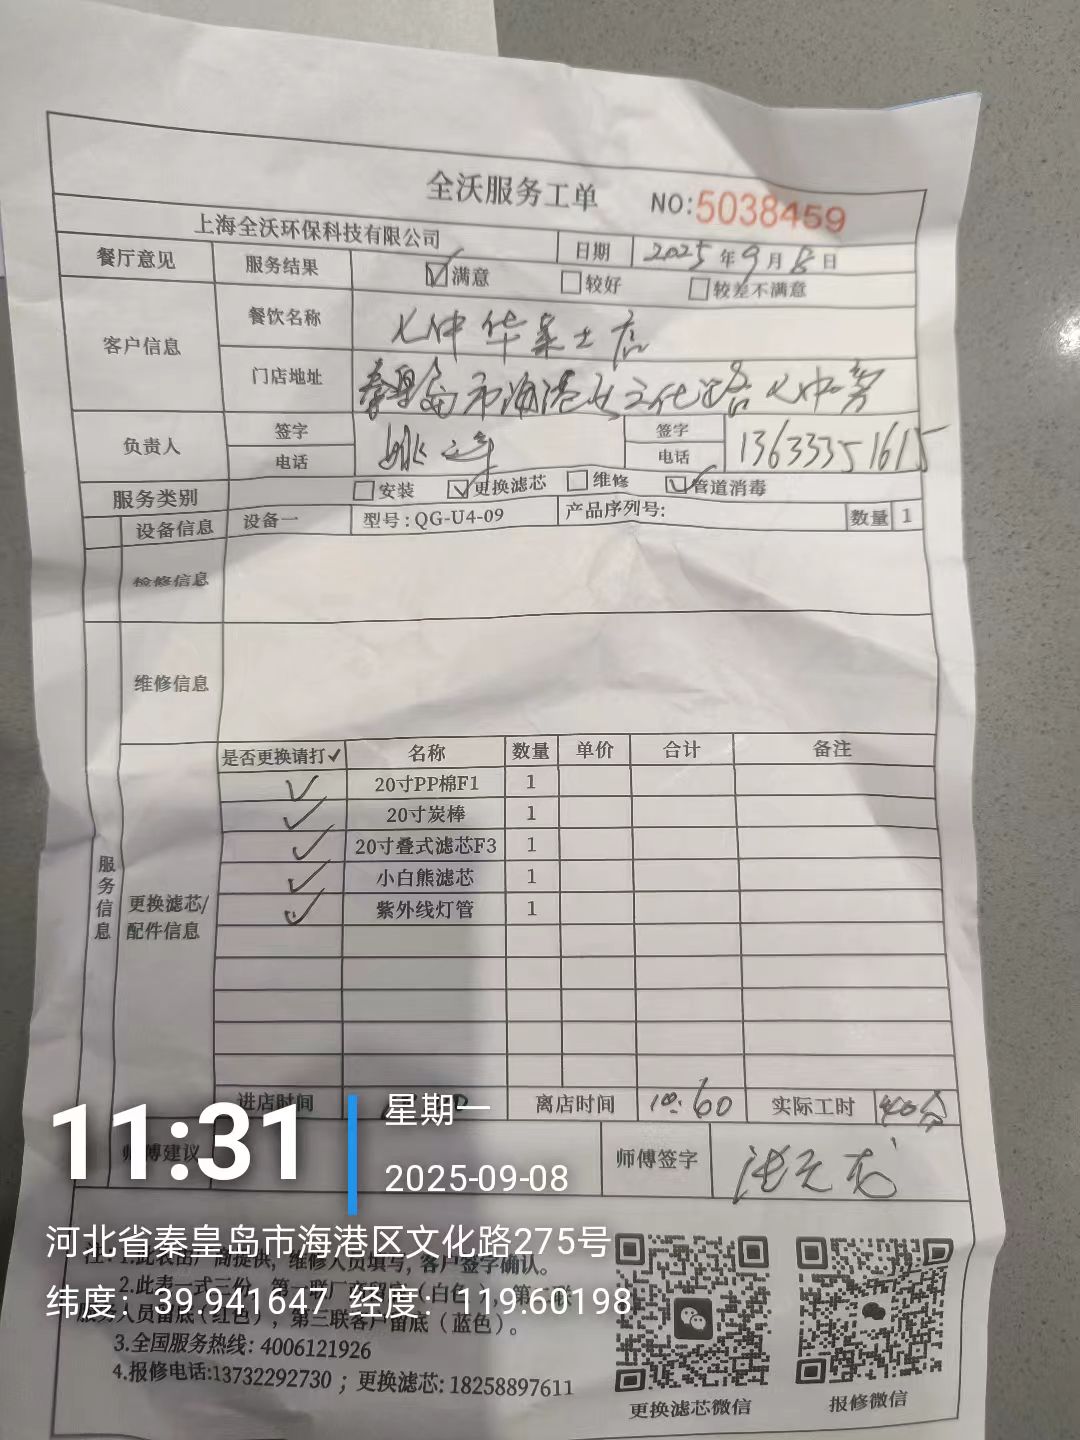 全沃服务工单 NO:5038459
上海全沃环保科技有限公司 日期 2025年9月8日
餐厅意见 服务结果 ☑满意 □较好 □较差不满意
客户信息 餐饮名称 七中华莱士店
门店地址 秦皇岛市海港区文化路七中旁
负责人 签字 电话 姚 签字 电话 13633351615
服务类别 □安装 ☑更换滤芯 □维修 ☑管道消毒
设备信息 设备一 型号:QG-U4-09 产品序列号: 数量 1
检修信息
维修信息
服务信息
更换滤芯/配件信息
是否更换请打✓ 名称 数量 单价 合计 备注
✓ 20寸PP棉F1 1
✓ 20寸炭棒 1
✓ 20寸叠式滤芯F3 1
✓ 小白熊滤芯 1
✓ 紫外线灯管 1
进店时间 离店时间 10:60 实际工时 40分
师傅建议 师傅签字
11:31 星期一
2025-09-08
河北省秦皇岛市海港区文化路275号
纬度：39.941647 经度：119.66198
注：1.此表由厂商提供，维修人员填写，客户签字确认。
2.此表一式三份，第一联厂商留底（白色），第二联
服务人员留底（红色），第三联客户留底（蓝色）。
3.全国服务热线：4006121926
4.报修电话:13732292730；更换滤芯:18258897611
更换滤芯微信 报修微信